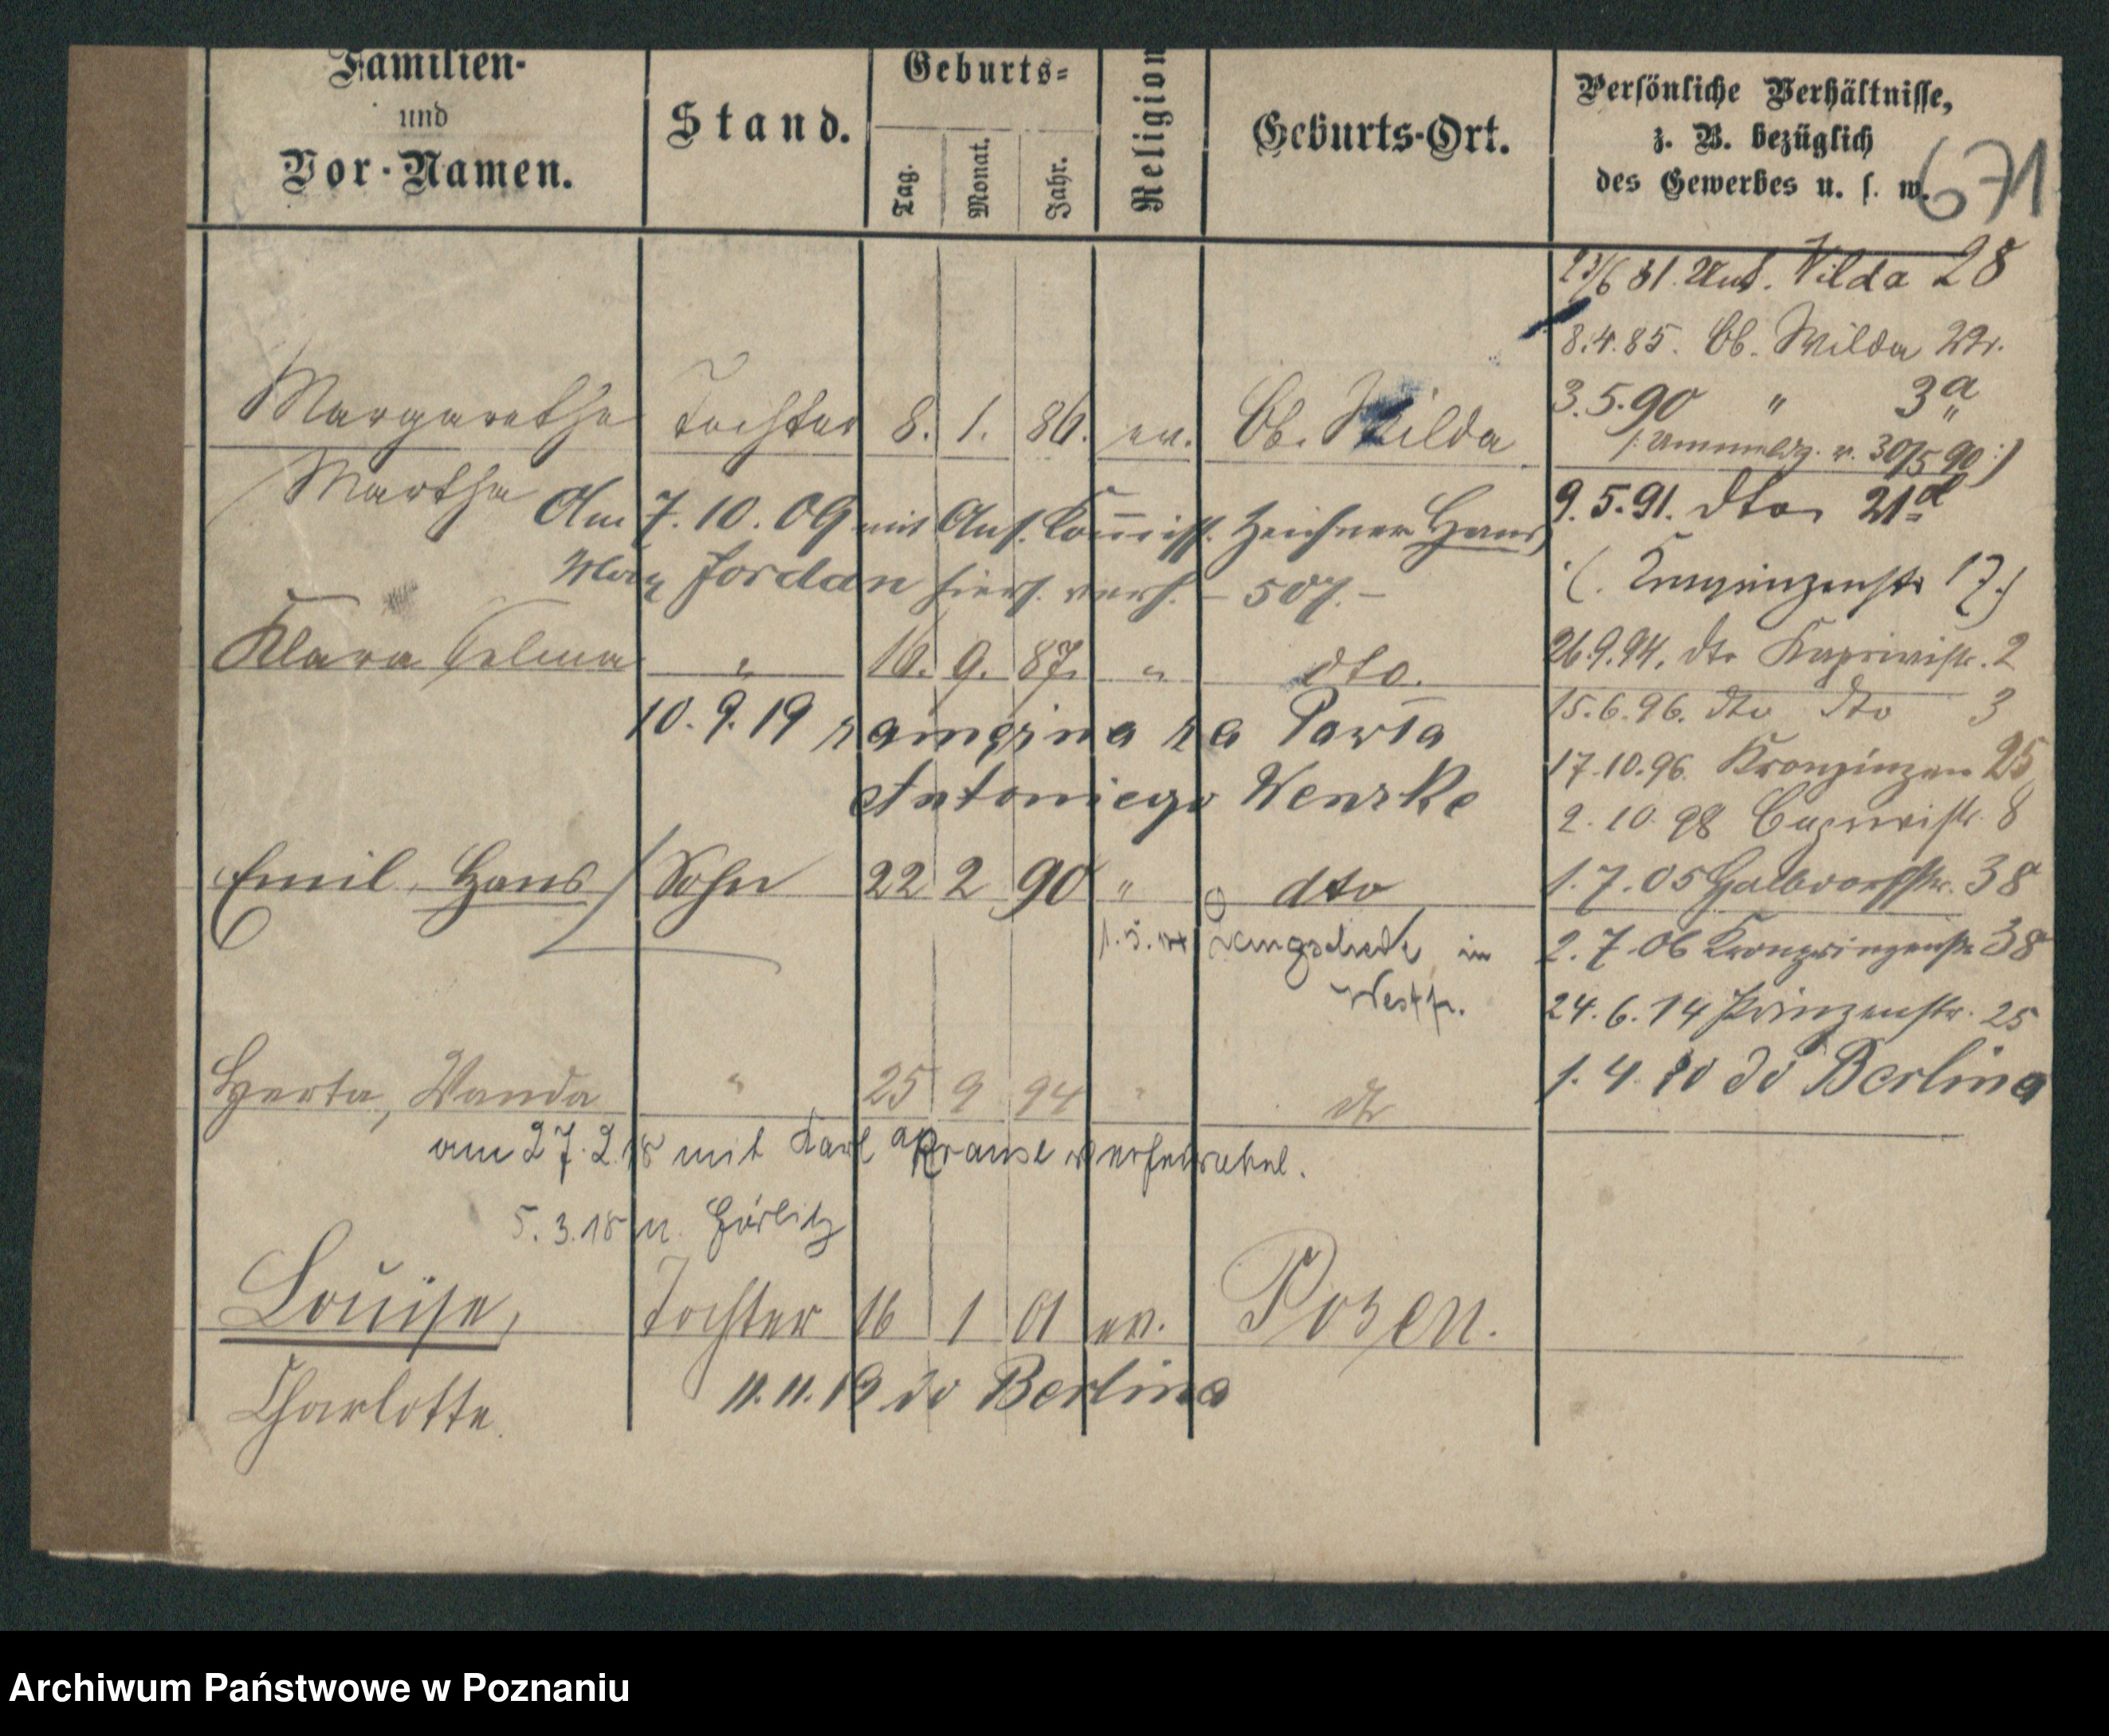 Familien-
und
Vor-Namen.
Stand.
Geburts-
Tag.
Monat.
Jahr.
Religion
Geburts-Ort.
Persönliche Verhältnisse,
z. B. bezüglich
des Gewerbes u. s. w.
671
Margarethe Tochter 8. 1. 86. ev. Ob. Wilda
Martha
Am 7. 10. 09 mit Zeichner Hans
Max Jordan hiers. verh. - 507. -
Klara Selma " 16. 9. 87. " dto.
10. 9. 19 zamężna za Pawła
Antoniego Wenzke
Emil, Hans Sohn 22 2 90 " dto
Langschede in
Westf.
Herta, Wanda " 25 9 94 " dto
am 27. 2. 18 mit Karl Krause verheiratet.
5. 3. 18 n. Görlitz
Louise, Tochter 16 1 01 ev. Posen.
Charlotte.
11. 11. 19 do Berlina
23/6 81. Unt. Wilda 28
8. 4. 85. Ob. Wilda
3. 5. 90 " 3a
(: Anmeldg. v. 30/5 90 :)
9. 5. 91. dto 21d
(. Kronprinzenstr 17.)
26. 9. 94. dto Kaprivistr. 2
15. 6. 96. dto dto 3
17. 10. 96. Kronprinzen 25
2. 10. 98 Caprivistr. 8
1. 7. 05 38
2. 7. 06 Kronprinzenstr 38
24. 6. 14 Prinzenstr. 25
1. 4. 20 do Berlina
Archiwum Państwowe w Poznaniu